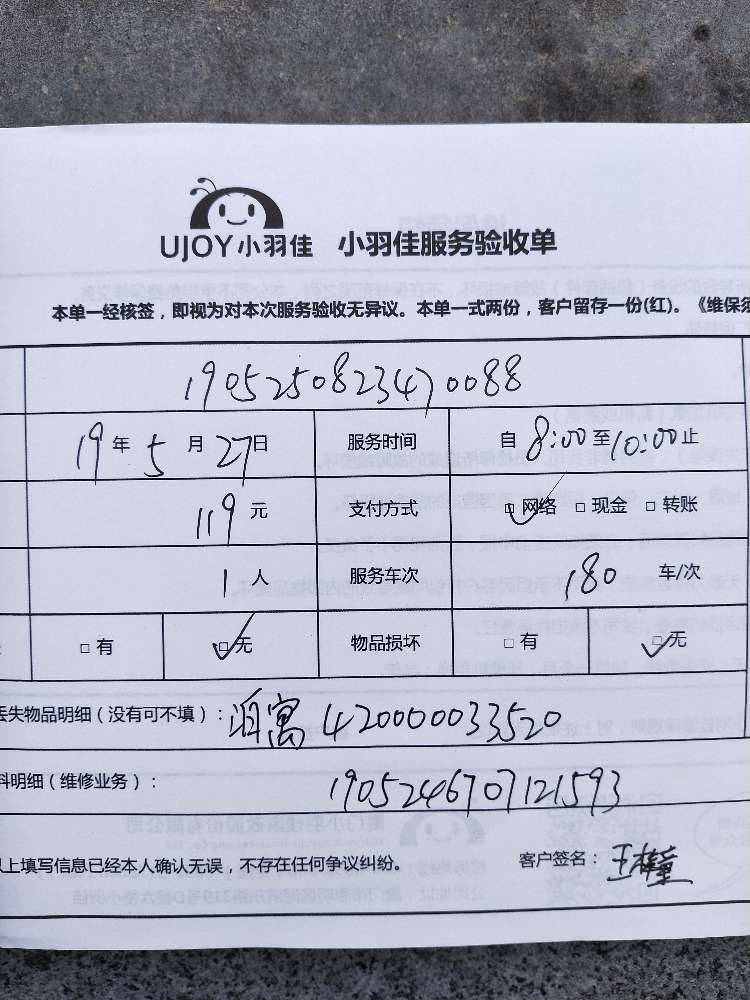 UJOY小羽佳 小羽佳服务验收单
本单一经核签，即视为对本次服务验收无异议。本单一式两份，客户留存一份(红)。《维保须
1905250823470088
19年5月27日 服务时间 自8:00至10:00止
119元 支付方式 □网络 □现金 □转账
1人 服务车次 180 车/次
□有 □无 物品损坏 □有 □无
丢失物品明细（没有可不填）：寓420000033520
料明细（维修业务）：
1905246707121593
以上填写信息已经本人确认无误，不存在任何争议纠纷。 客户签名：王